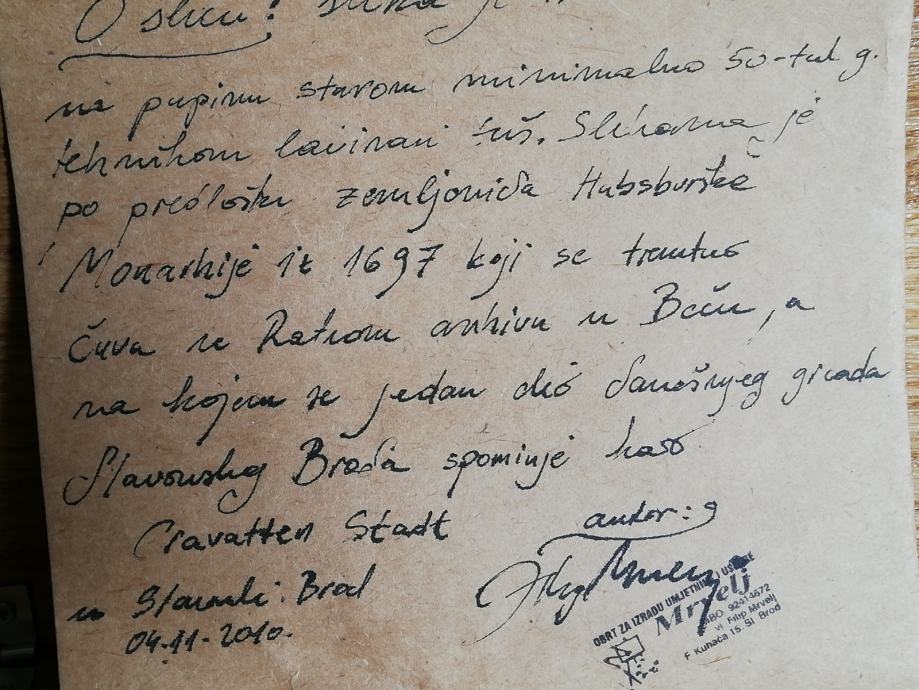 O slici! Slika je
na papiru starom minimalno 50-tak g.
tehnikom lavirani tuš. Slikana je
po predlošku zemljovida Habsburške
Monarhije iz 1697 koji se trenutno
čuva u Ratnom arhivu u Beču, a
na kojem se jedan dio današnjeg grada
Slavonskog Broda spominje kao
Cravatten Stadt
autor:
u Slavonski Brod
04.11.2010.
OBRT ZA IZRADU UMJETNINA I USLUGE
Mrvelj
OBO 92414672
vl Filip Mrvelj
F Kunača 15. Sl Brod